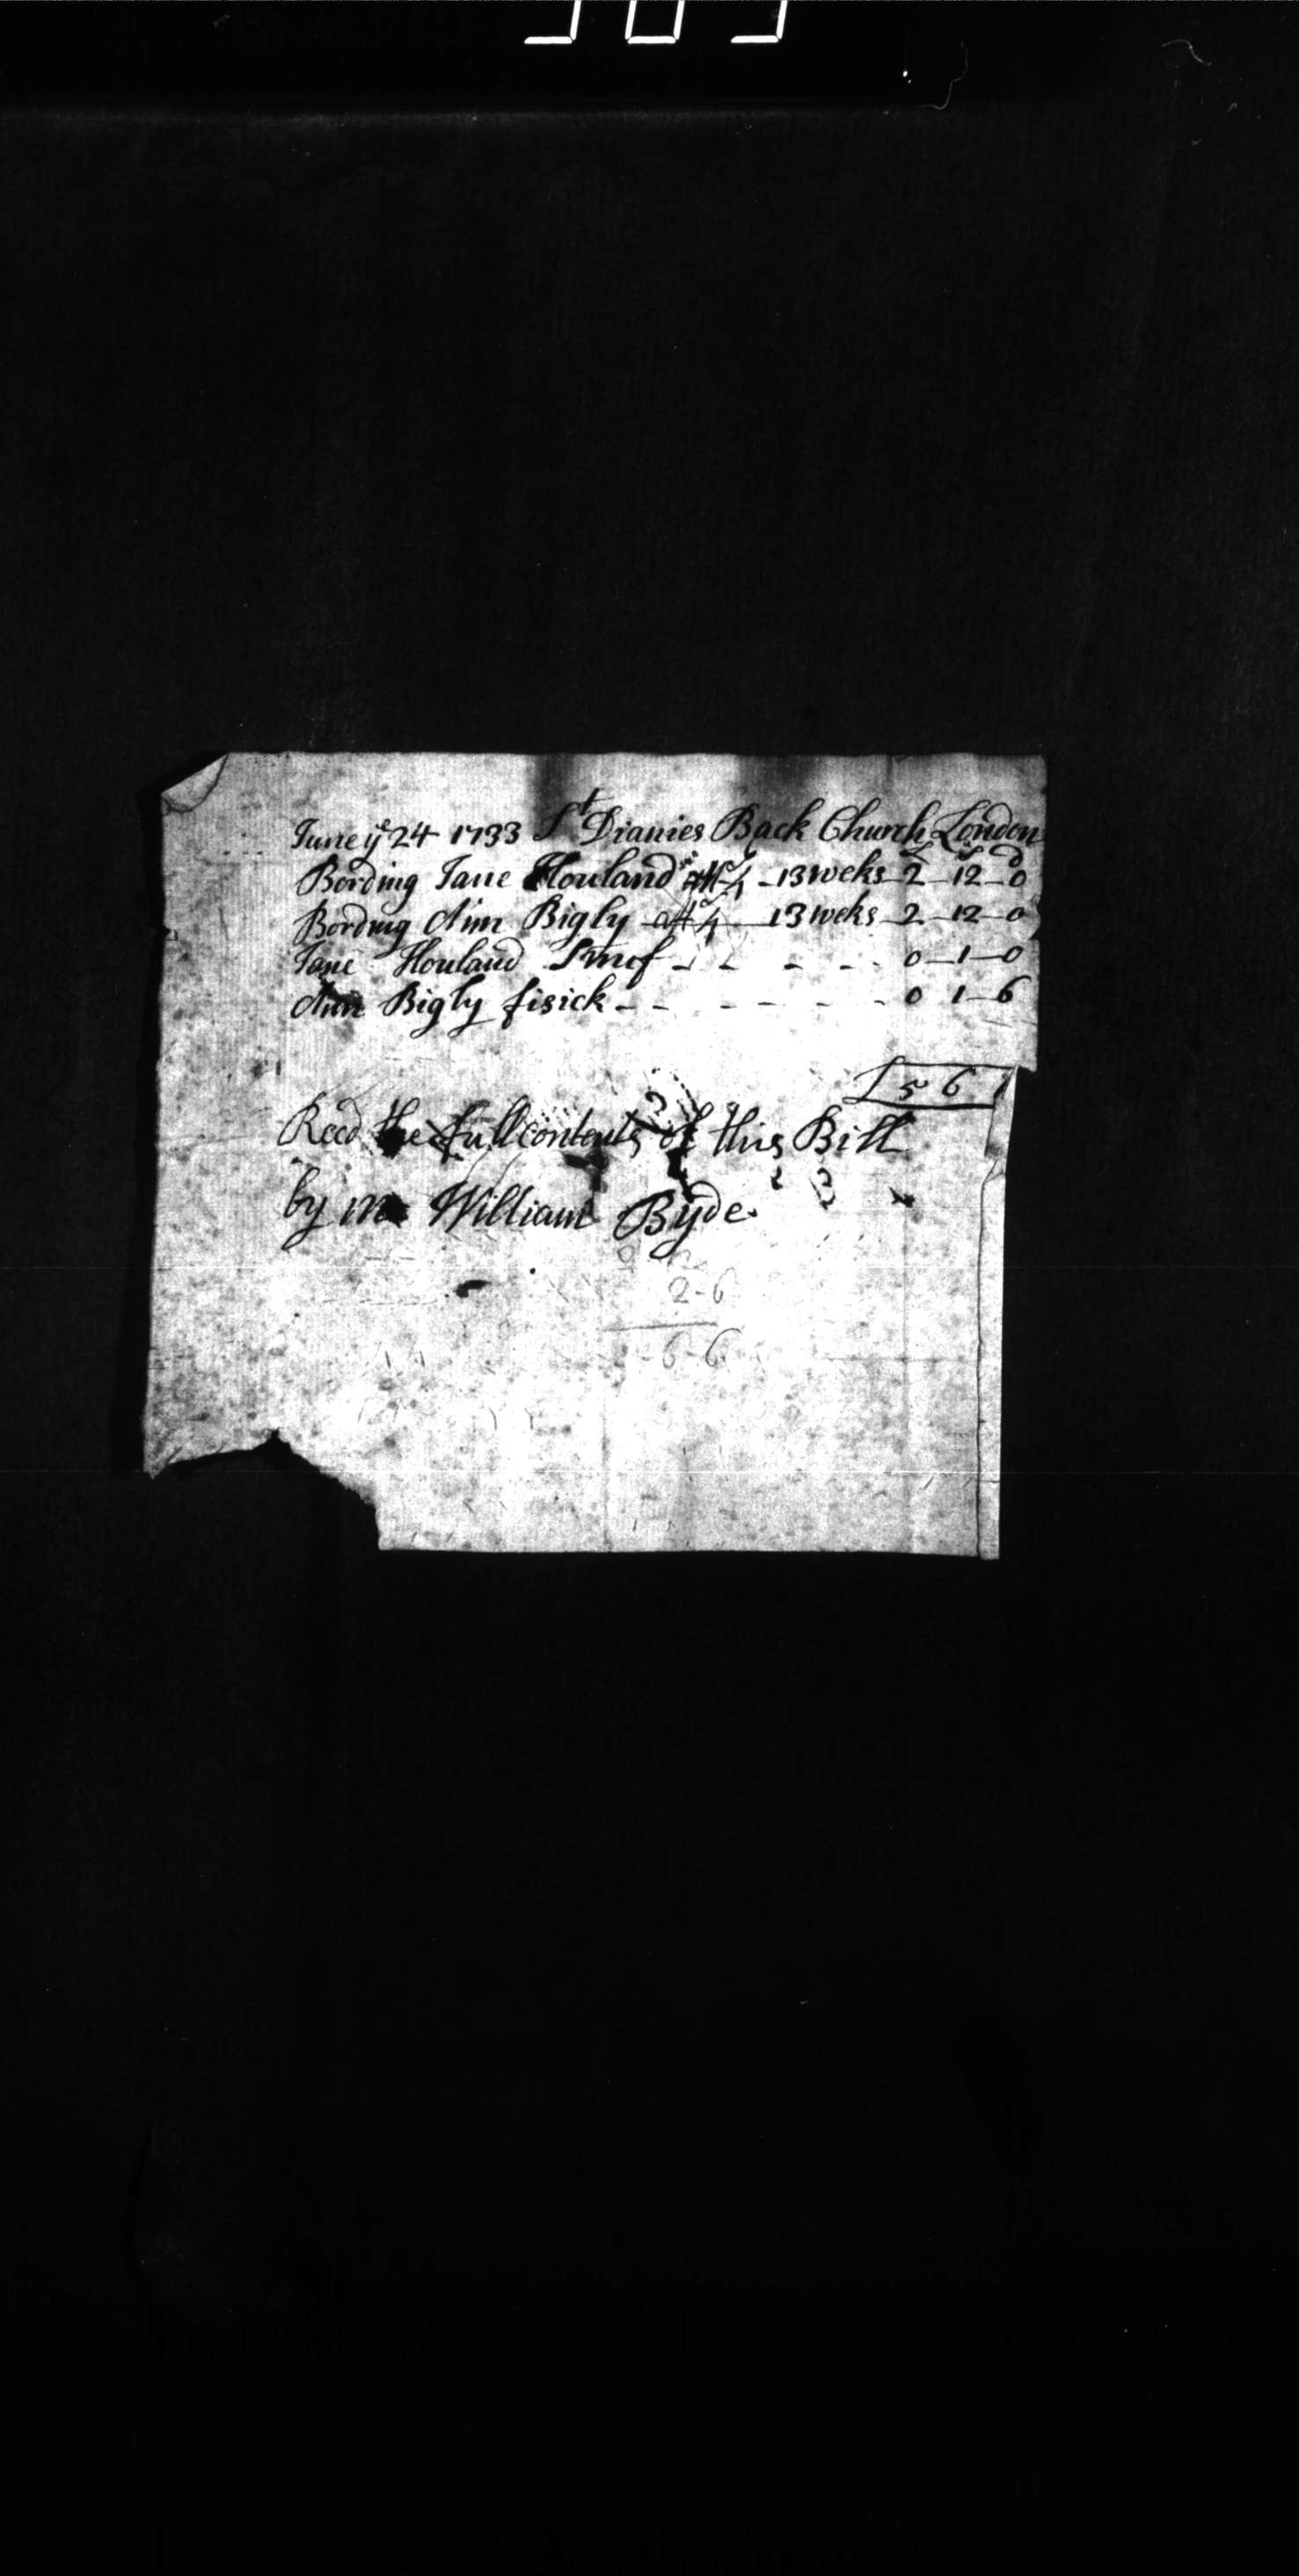 June ye 24 1733 St Dianies Back Church London
£ s d
Bording Jane Houland att 4s - 13 weks - 2 - 12 - 0
Bording Ann Bigly att 4s 13 weks - 2 - 12 - 0
Jane Houland Snuf - - - - - 0 - 1 - 0
Ann Bigly fisick - - - - - - - 0 1 - 6
£ 5 6
Recd the full contents of this Bill
by me William Byde
2 - 6
6 - 6